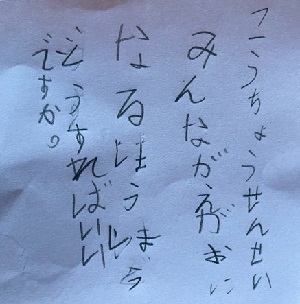 こうちょうせんせい
みんながえがおに
なるほうしまら
どうすればいい
ですか。